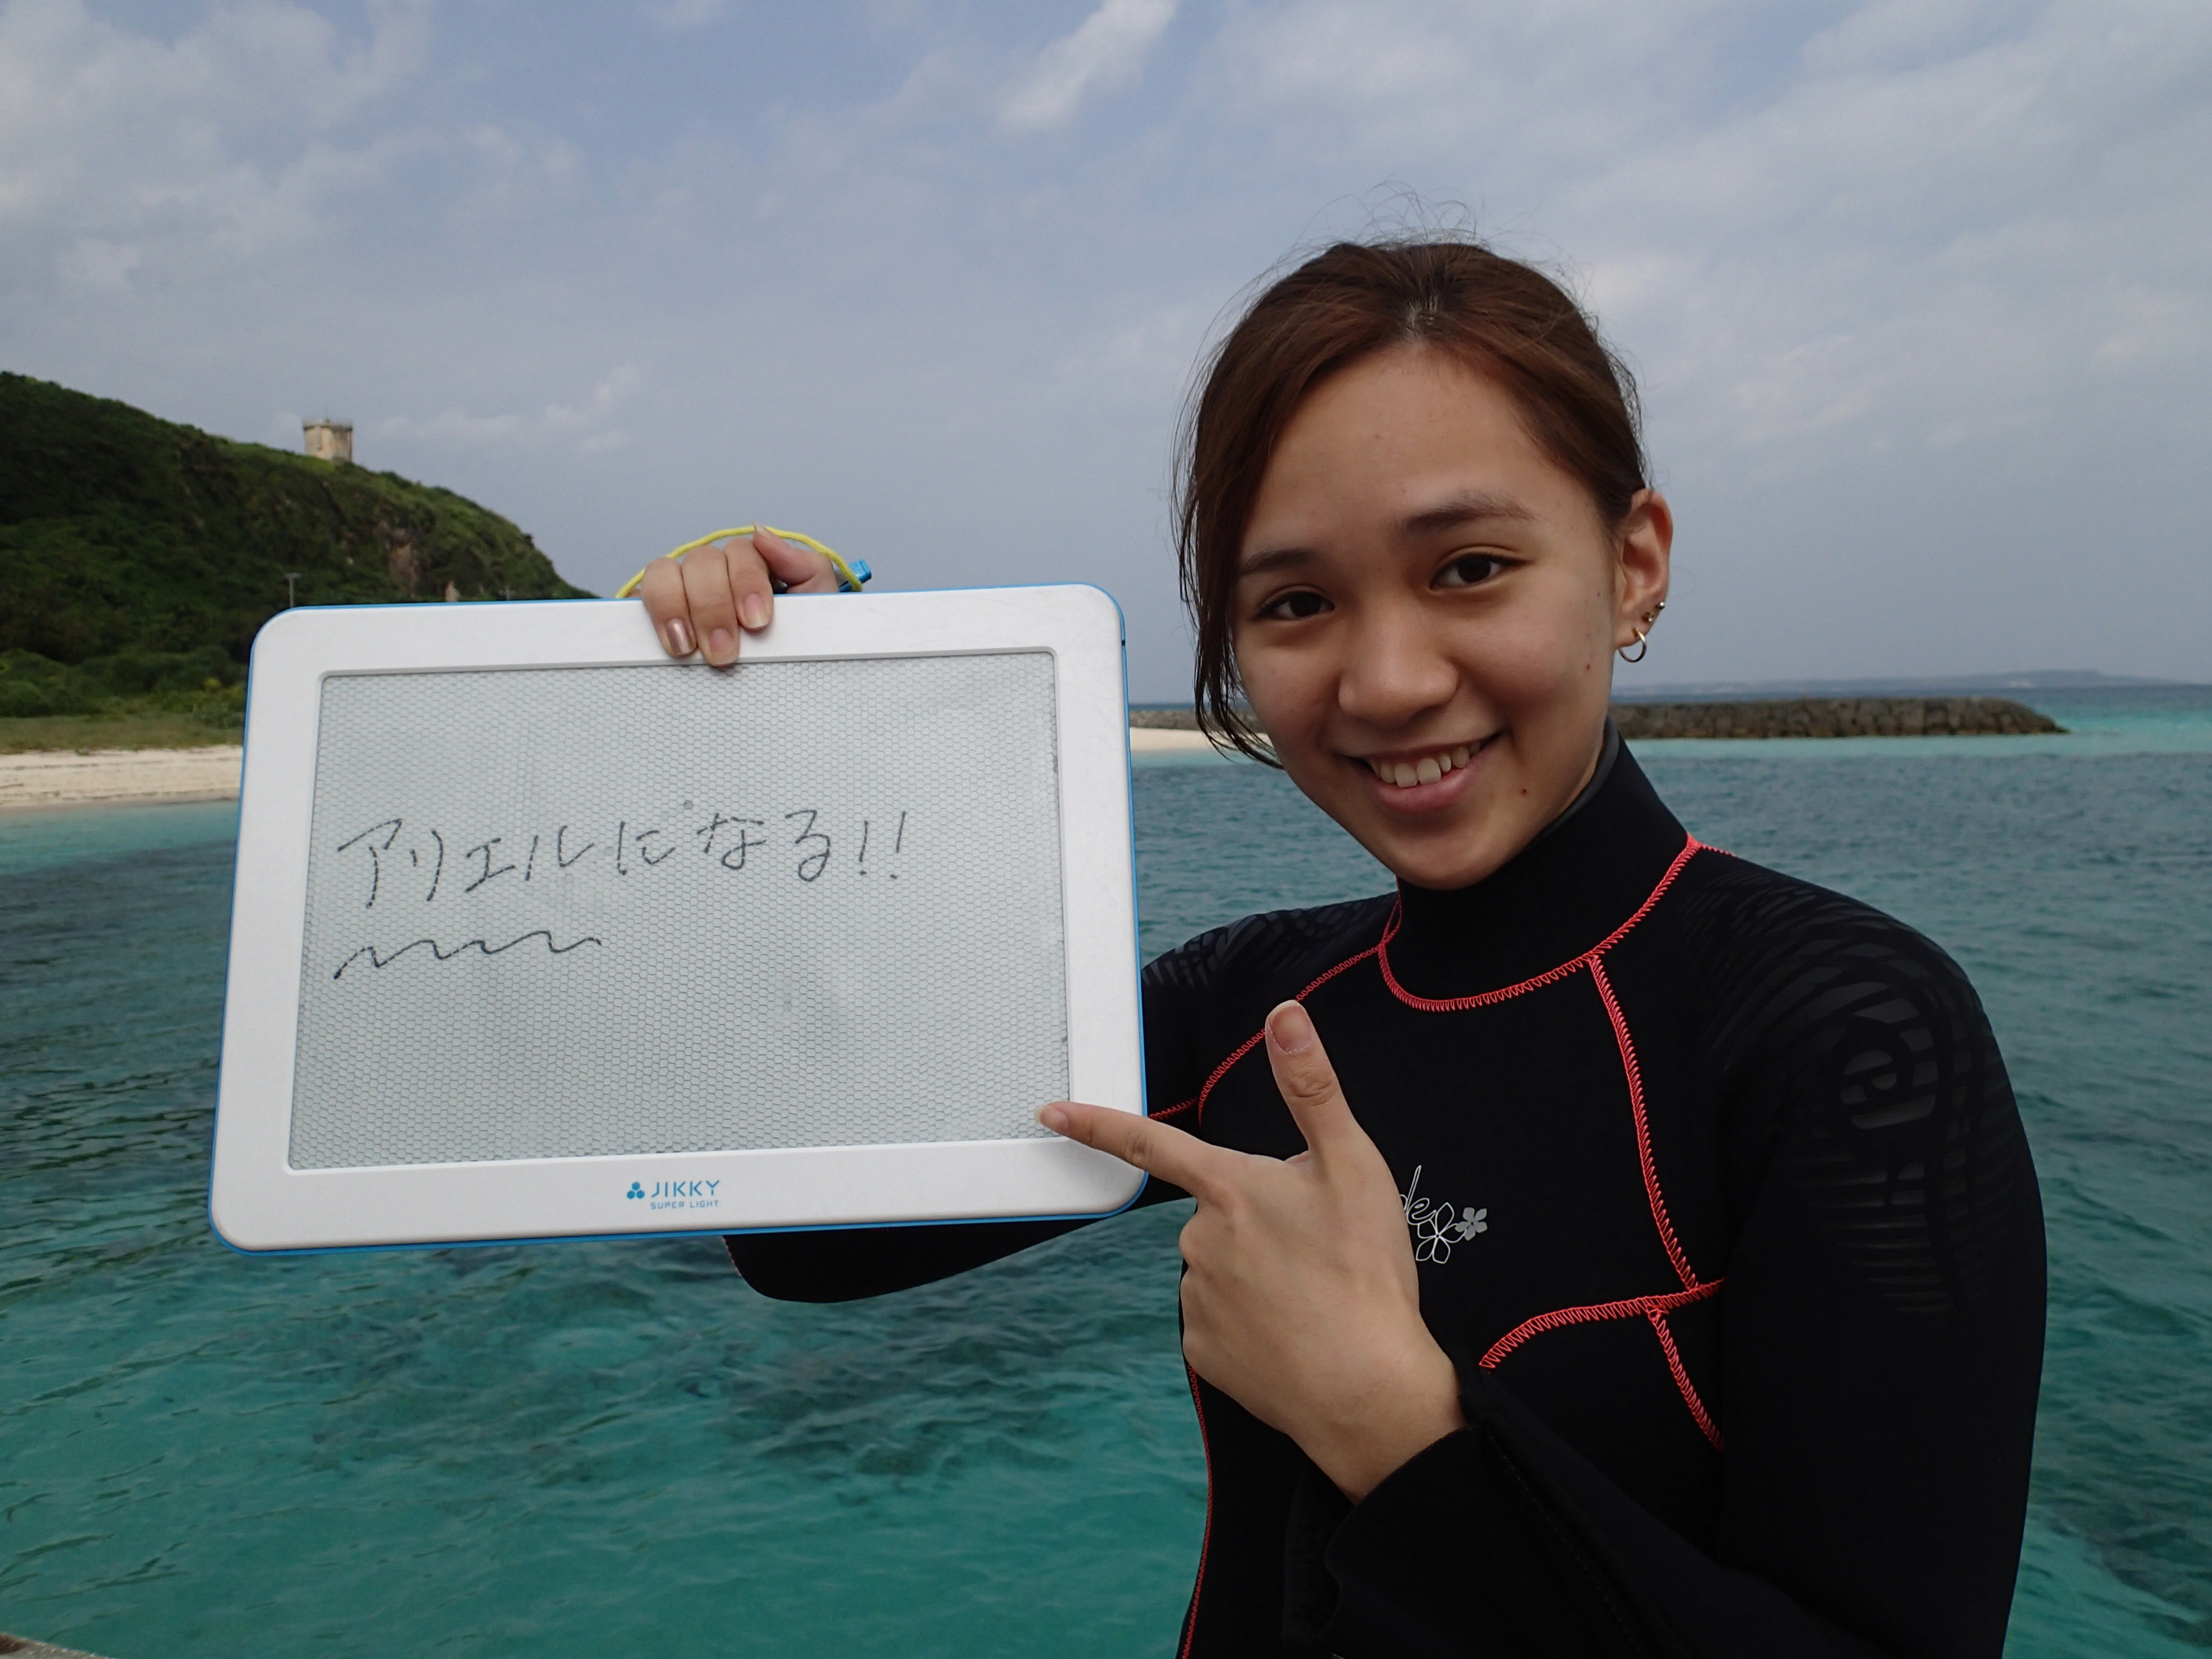 アリエルになる!!
JIKKY
SUPER LIGHT